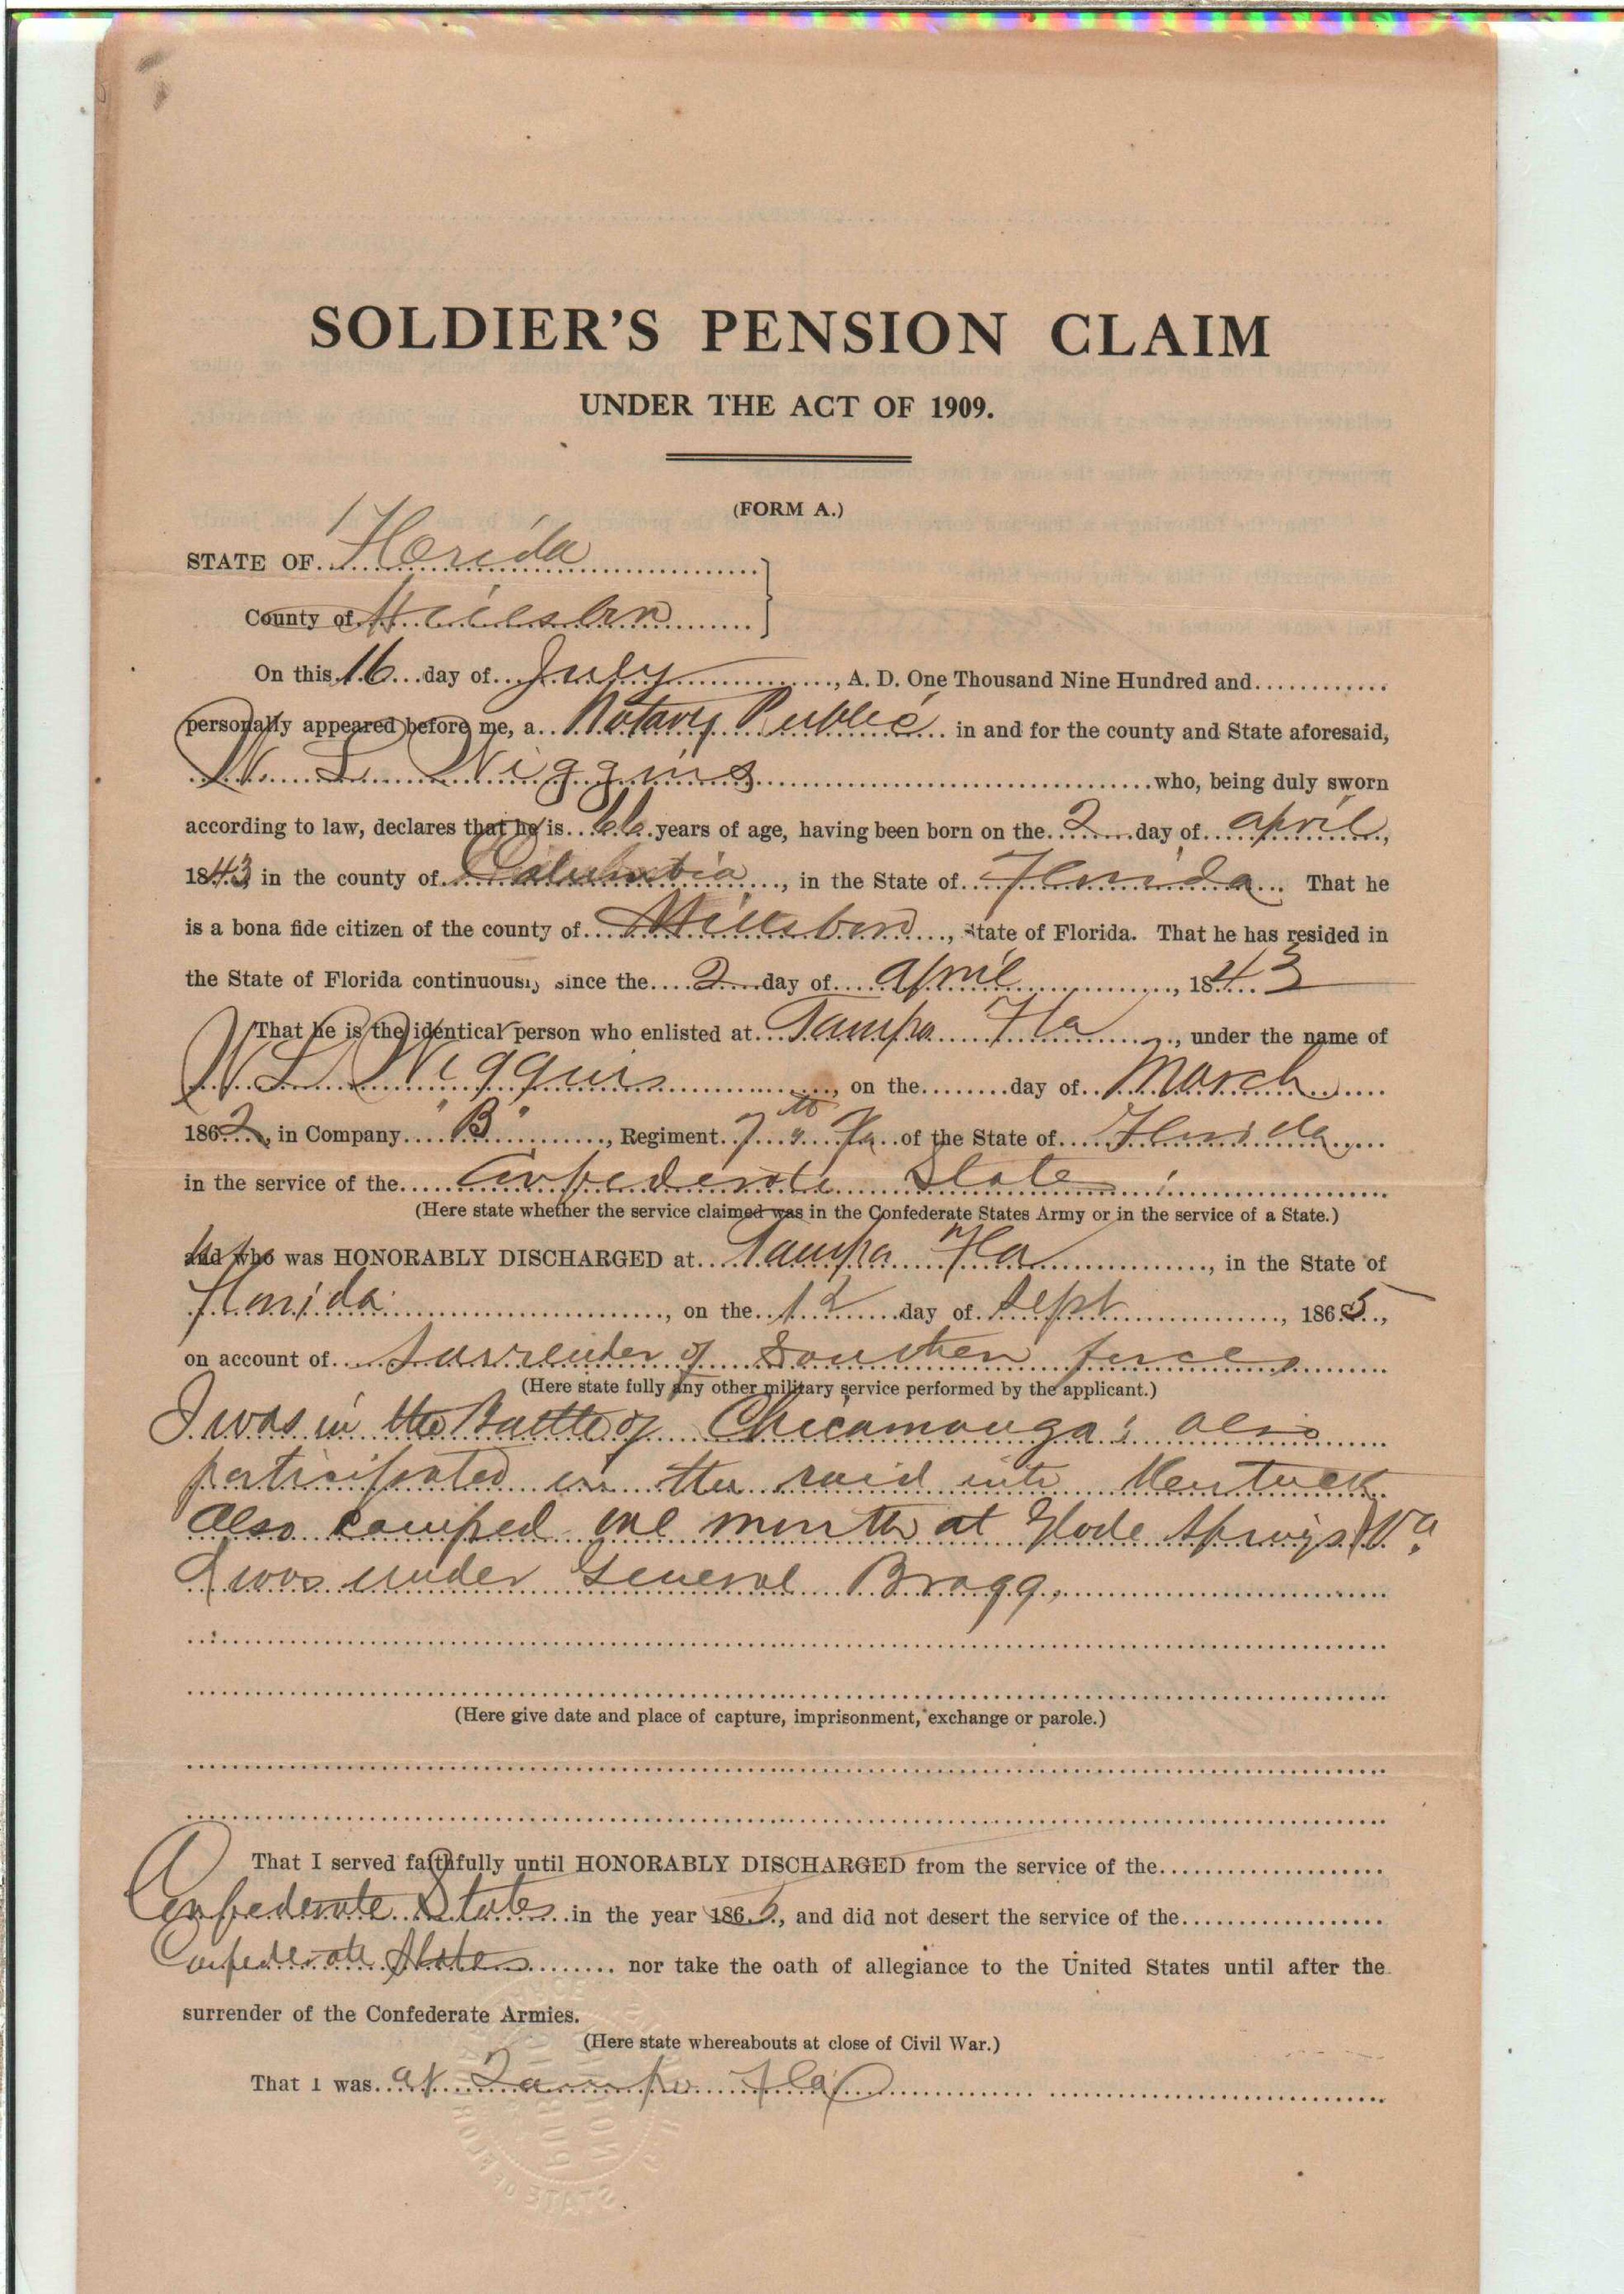 SOLDIER'S PENSION CLAIM
UNDER THE ACT OF 1909.
(FORM A.)
STATE OF Florida
County of Hillsboro
On this 16 day of July, A. D. One Thousand Nine Hundred and
personally appeared before me, a Notary Public in and for the county and State aforesaid,
W. L. Wiggins who, being duly sworn
according to law, declares that he is 66 years of age, having been born on the 2 day of april,
1843 in the county of Columbia, in the State of Florida. That he
is a bona fide citizen of the county of Hillsboro, State of Florida. That he has resided in
the State of Florida continuously since the 2 day of april, 1843
That he is the identical person who enlisted at Tampa Fla, under the name of
W L Wiggins, on the day of March
1862, in Company "B", Regiment 7th Fla of the State of Florida
in the service of the Confederate State
(Here state whether the service claimed was in the Confederate States Army or in the service of a State.)
and who was HONORABLY DISCHARGED at Tampa Fla, in the State of
Florida, on the 12 day of Sept, 1865,
on account of surrender of Southern forces
(Here state fully any other military service performed by the applicant.)
I was in the Battle of Chicamauga; also
participated in the raid into Kentuck
Also camped one month at Glade Springs Va.
I was under General Bragg.
(Here give date and place of capture, imprisonment, exchange or parole.)
That I served faithfully until HONORABLY DISCHARGED from the service of the
Confederate States in the year 1865, and did not desert the service of the
Confederate States nor take the oath of allegiance to the United States until after the
surrender of the Confederate Armies.
(Here state whereabouts at close of Civil War.)
That I was at Tampa Fla